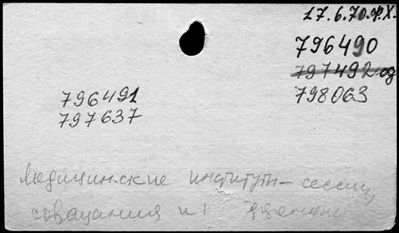 17.6.70.Ф.Х.
796490
797492
798063
796491
797637
Медицинские институты – сессии,
совещания и